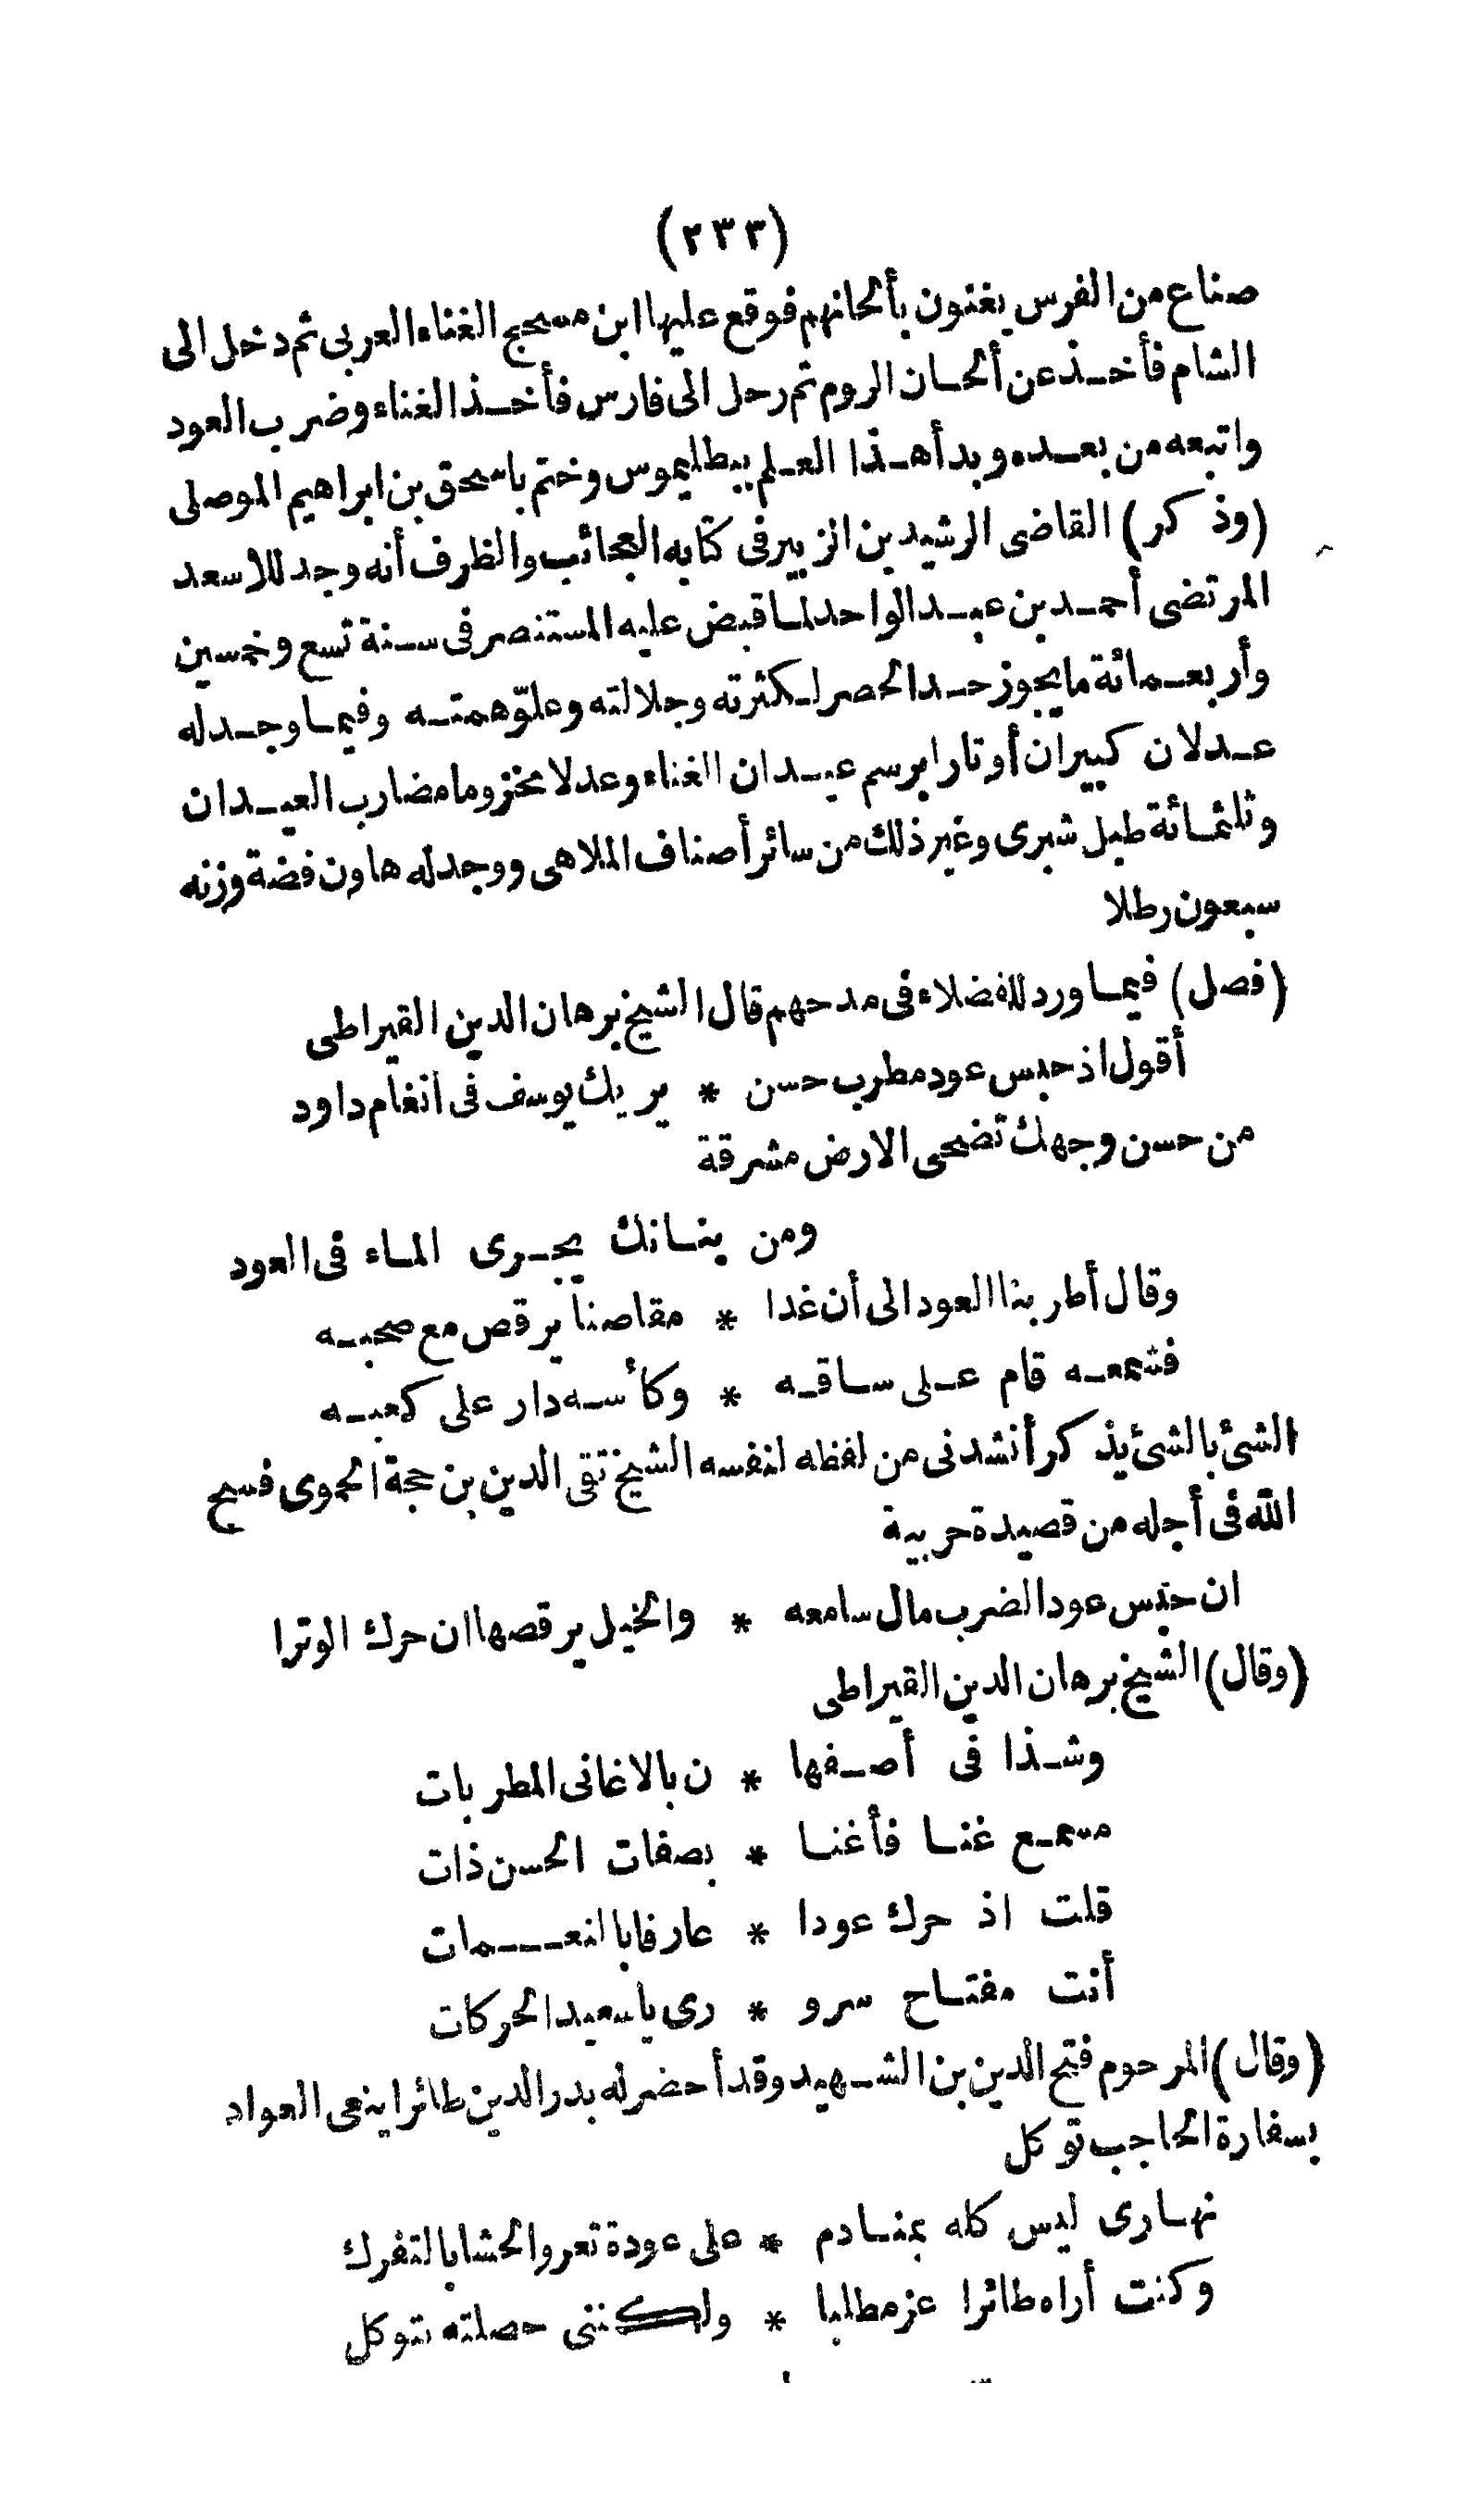 (٢٣٣)
صناع من الفرس يغنون بألحانهم فوقع عليها ابن مسحج الغناء العربى ثم دخل الى
الشام فأخذ عن ألحان الروم ثم رحل الى فارس فأخذ الغناء وضرب العود
واتبعه من بعده وبدأ هذا العلم ببطليموس وختم باسحق بن ابراهيم الموصلى
(وذكر) القاضى الرشيد بن الزبير فى كتابه العجائب والظرف أنه وجد للاسعد
المرتضى أحمد بن عبد الواحد لما قبض عليه المستنصر فى سنة تسع وخمسين
وأربعمائة ما يجوز حد الحصر لكثرته وجلالته وعلوّ همته وفيما وجد له
عدلان كبيران أوتارا برسم عيدان الغناء وعدلا مخزوما مضارب العيدان
وثلثمائة طبل شبرى وغير ذلك من سائر أصناف الملاهى ووجد له هاون فضة وزنه
سبعون رطلا
(فصل) فيما ورد للفضلاء فى مدحهم قال الشيخ برهان الدين القيراطى
أقول اذ حبس عود مطرب حسن * يريك يوسف فى انغام داود
من حسن وجهك تضحى الارض مشرقة
ومن بنانك يجرى الماء فى العود
وقال أطربنا العود الى أن غدا * مقاصنا يرقص مع صحبه
فشمعه قام على ساقه * وكأسه دار على كعبه
الشئ بالشئ يذكر أنشدنى من لفظه لنفسه الشيخ تقى الدين بن حجة الحموى فسح
الله فى أجله من قصيدة حربية
ان حبس عود الضرب مال سامعه * والخيل يرقصها ان حرك الوترا
(وقال) الشيخ برهان الدين القيراطى
وشذا فى أصفها * ن بالاغانى المطربات
مسمع غنا فأغنا * بصفات الحسن ذات
قلت اذ حرك عودا * عارفا بالنعمات
أنت مفتاح سرو * رى يا سعيد الحركات
(وقال) المرحوم فتح الدين بن الشهيد وقد أحضر له بدر الدين طائرا ينعى العواد
بسفارة الحاجب توكل
نهارى ليس كله بمنادم * على عودة تعرو الحشا بالتفرك
وكنت أراه طائرا عز مطلبا * ولكننى حصلته بتوكل